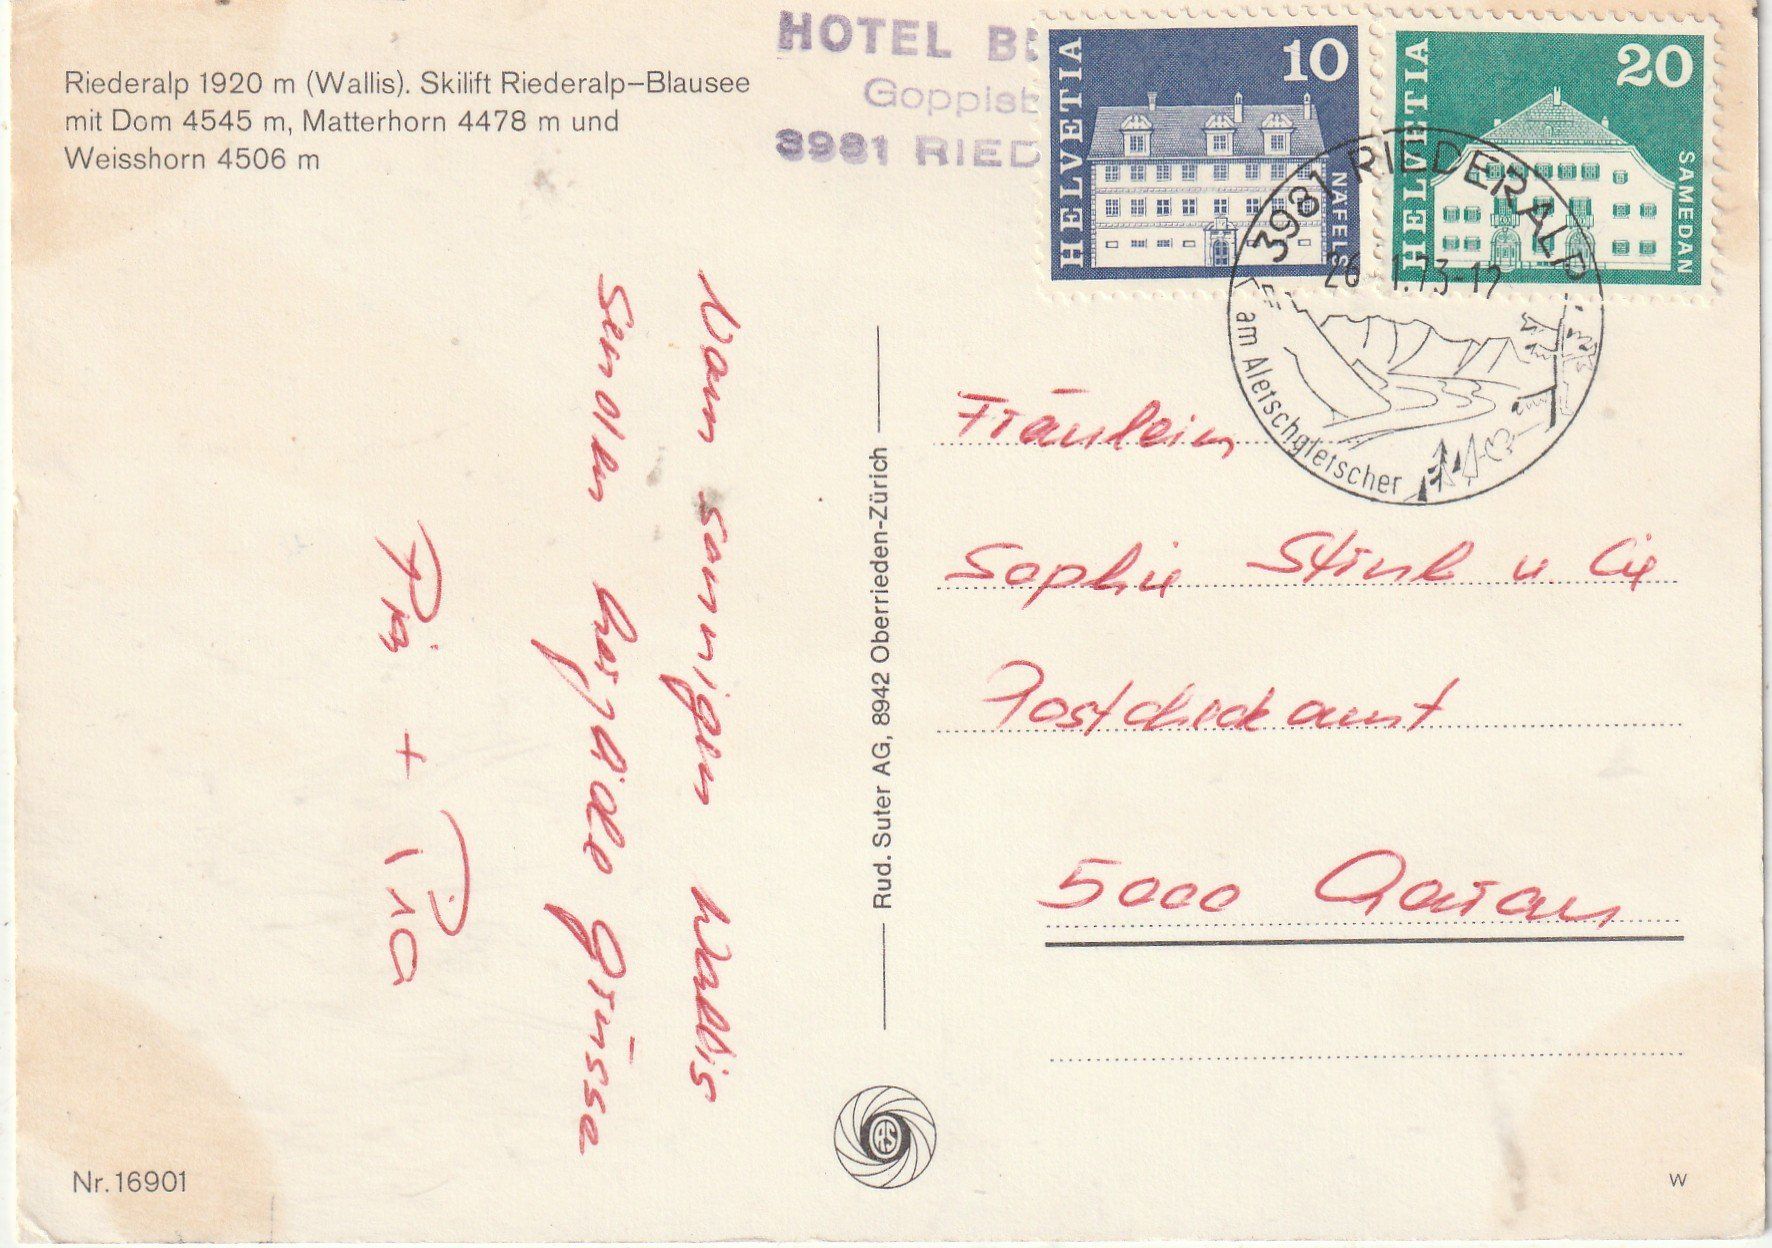 Riederalp 1920 m (Wallis). Skilift Riederalp–Blausee
mit Dom 4545 m, Matterhorn 4478 m und
Weisshorn 4506 m
HOTEL
3981 RIED
HELVETIA
10
NÄFELS
HELVETIA
20
SAMEDAN
3981 RIEDERALP
26 1.73-12
am Aletschgletscher
Vom sonnigen Wallis
senden
Grüsse
+ Pia
Rud. Suter AG, 8942 Oberrieden-Zürich
Fräulein
Sophie u. Cie
Postcheckamt
5000 Aarau
RS
Nr. 16901
W